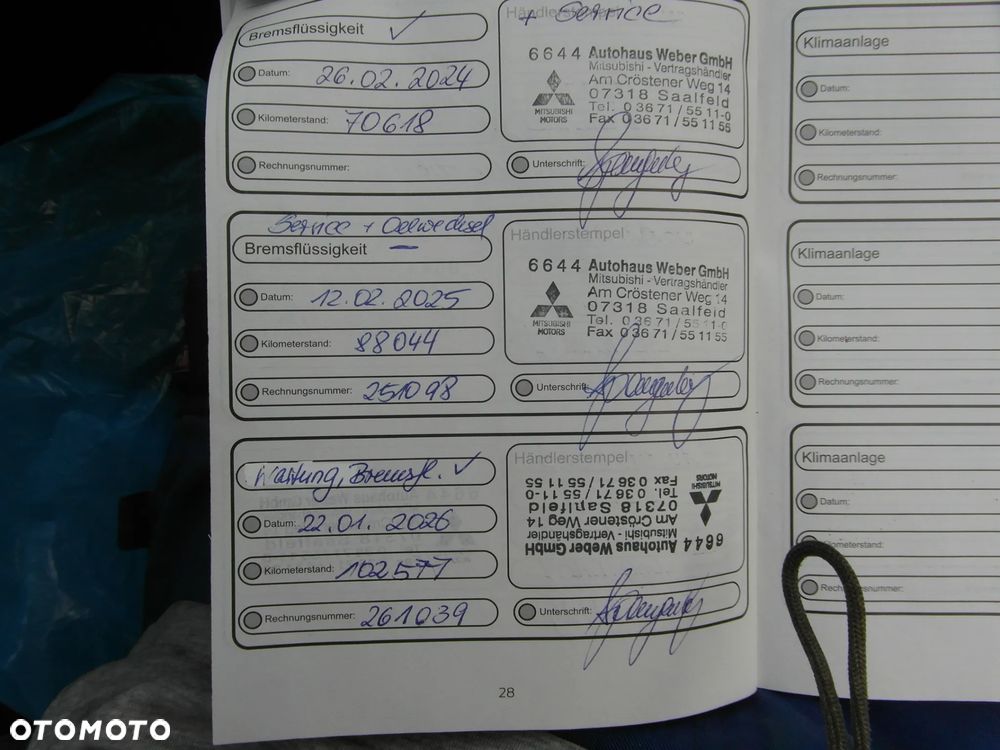 Bremsflüssigkeit ✓
Datum: 26.02.2024
Kilometerstand: 70618
Rechnungsnummer:
+ Service
6644 Autohaus Weber GmbH
Mitsubishi - Vertragshändler
Am Cröstener Weg 14
07318 Saalfeld
Tel. 03671/5511-0
Fax 03671/551155
MITSUBISHI
MOTORS
Unterschrift:
Service + Oelwechsel
Bremsflüssigkeit –
Datum: 12.02.2025
Kilometerstand: 88044
Rechnungsnummer: 251098
Händlerstempel
6644 Autohaus Weber GmbH
Mitsubishi - Vertragshändler
Am Cröstener Weg 14
07318 Saalfeld
Tel. 03671/5511-0
Fax 03671/551155
MITSUBISHI
MOTORS
Unterschrift:
Wartung, Bremsfl. ✓
Datum: 22.01.2026
Kilometerstand: 102577
Rechnungsnummer: 261039
Händlerstempel
6644 Autohaus Weber GmbH
Mitsubishi - Vertragshändler
Am Cröstener Weg 14
07318 Saalfeld
Tel. 03671/5511-0
Fax 03671/551155
MITSUBISHI
MOTORS
Unterschrift:
28
Klimaanlage
Datum:
Kilometerstand:
Rechnungsnummer:
Klimaanlage
Datum:
Kilometerstand:
Rechnungsnummer:
Klimaanlage
Datum:
OTOMOTO